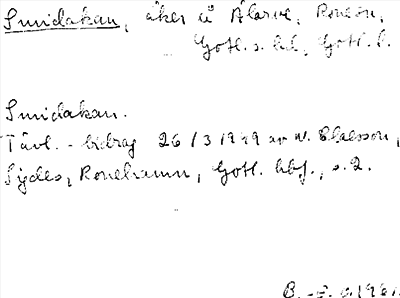 Smidakan, åker u Alarve, Roneson,
Gotl. s. hd, Gotl. l.
Smidakan.
Tävl. - bidrag 26/3 1949 av W. Claesson,
Sigdes, Ronehamn, Gotl. hbf., s. 2.